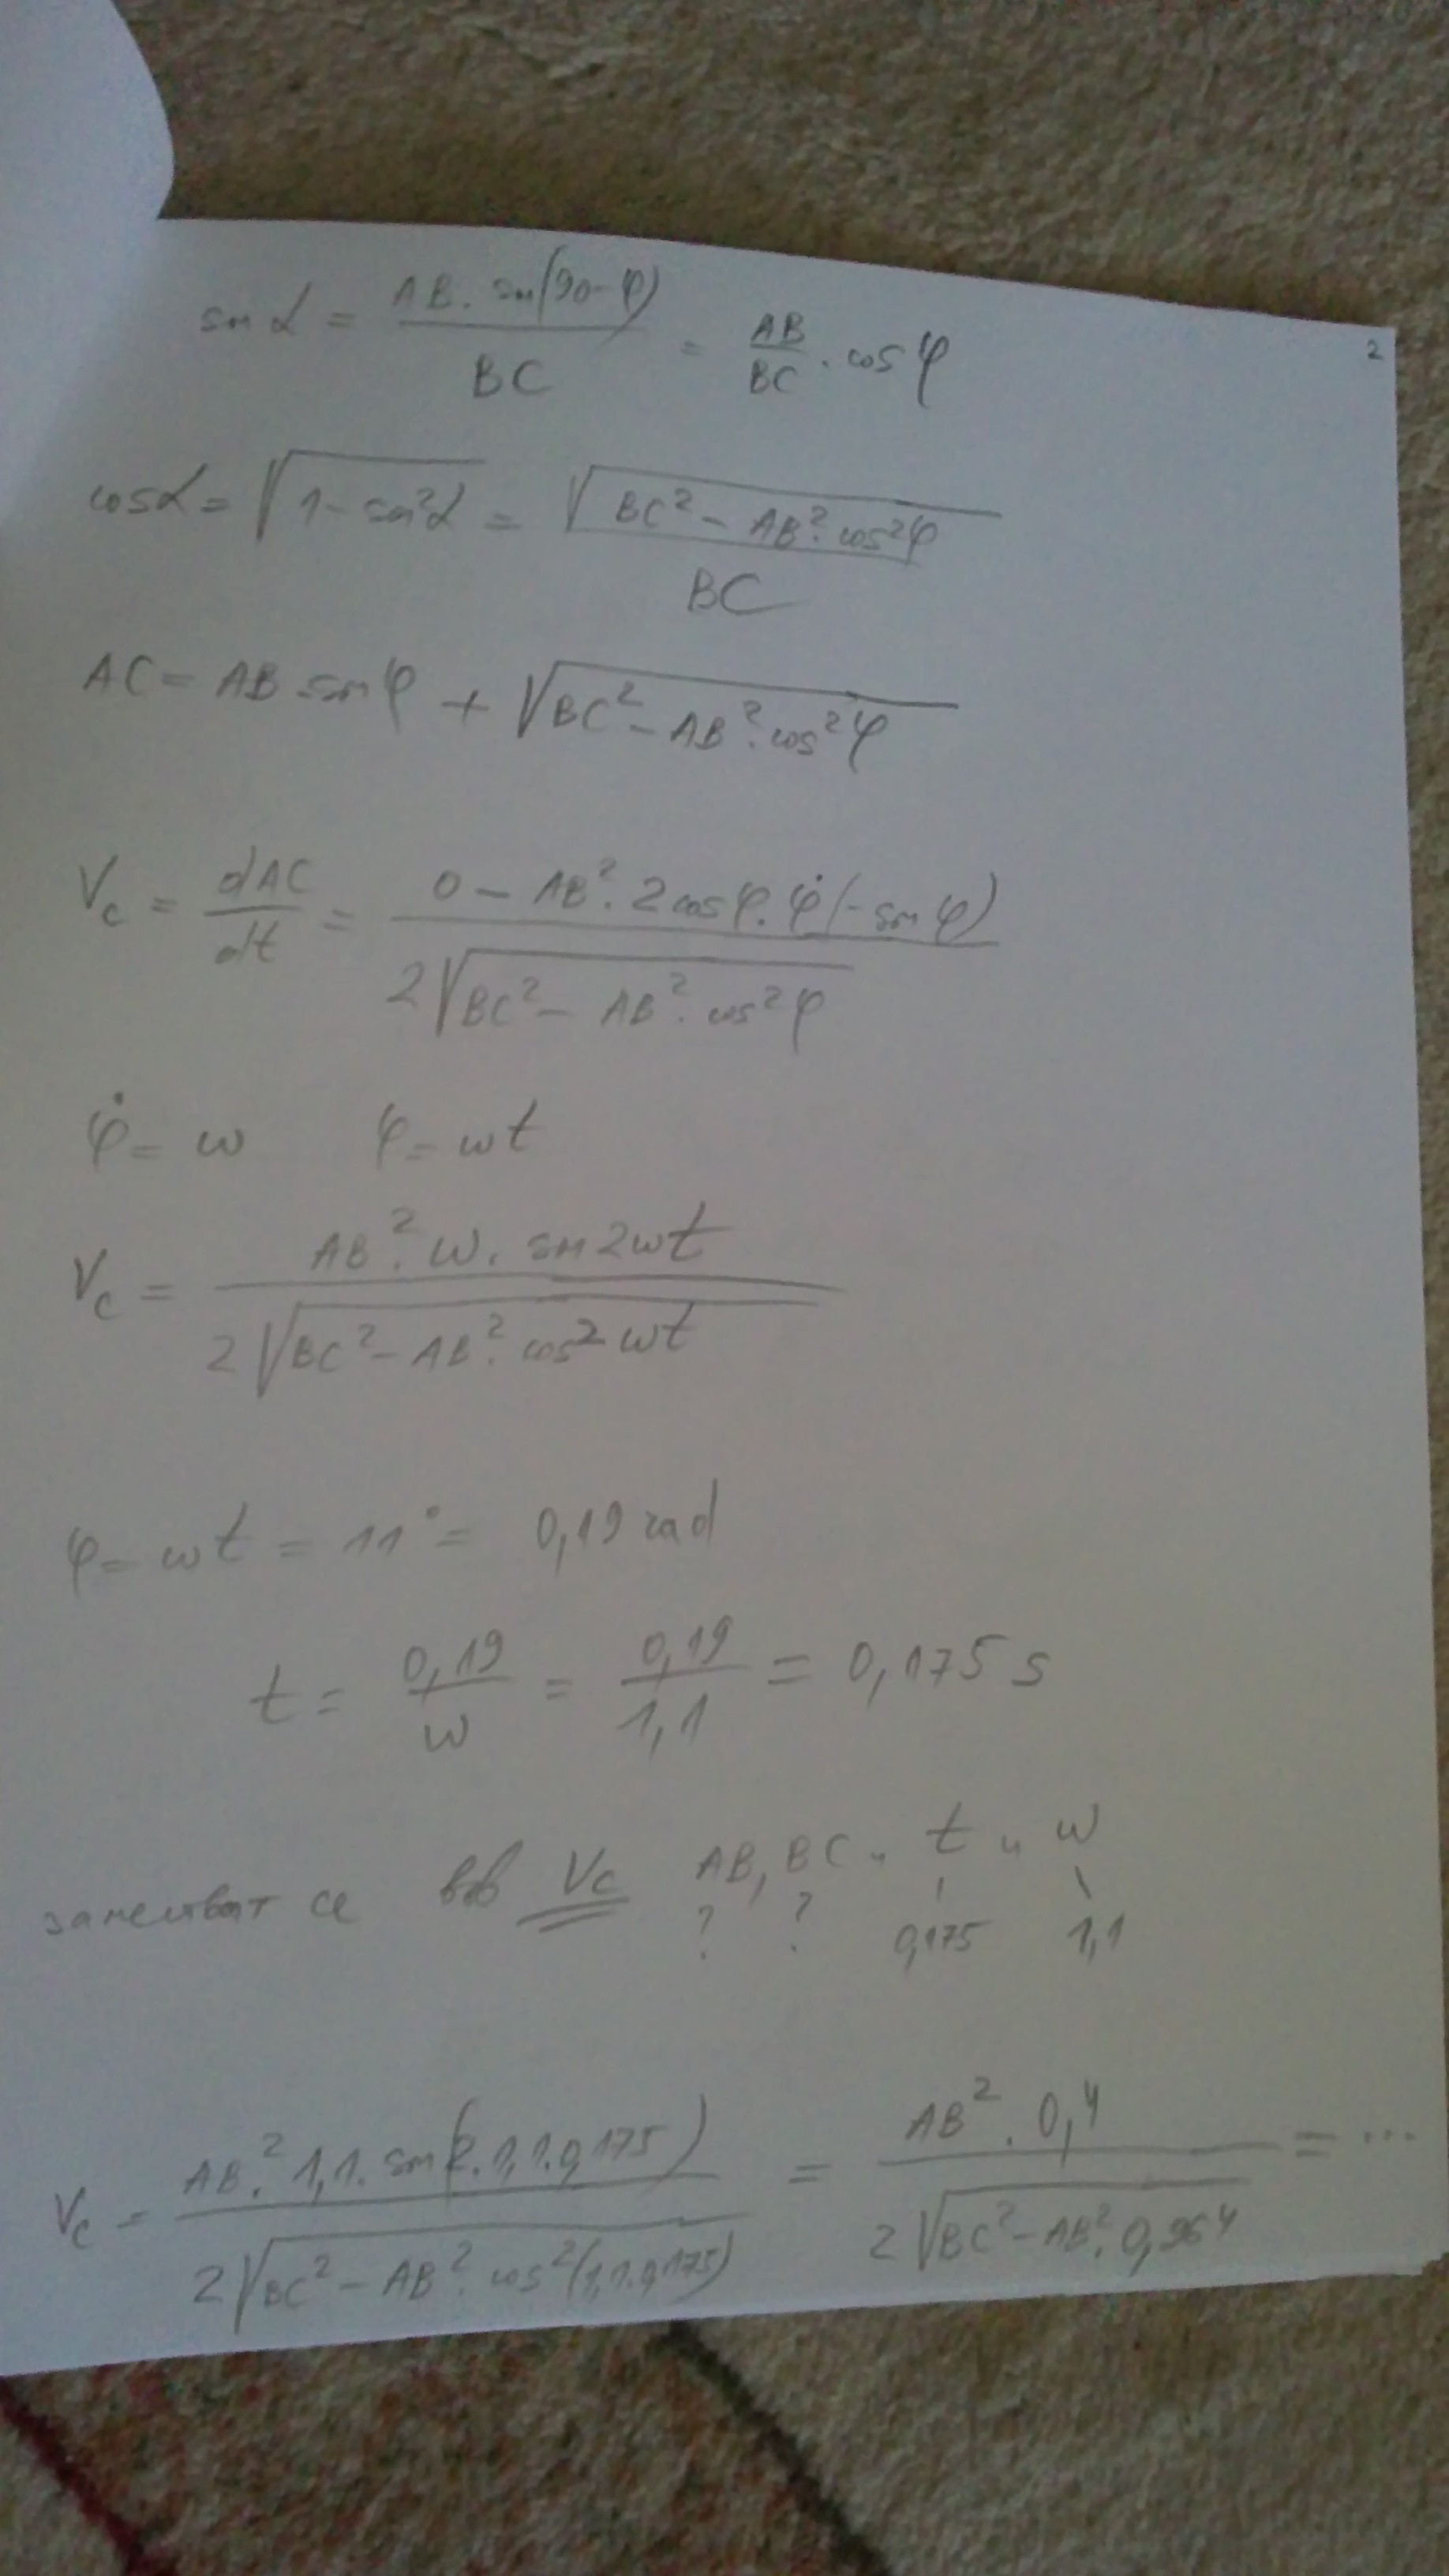 2
sin α = AB. sin(90-φ) / BC = AB / BC . cos φ
cos α = √(1 - sin²α) = √(BC² - AB². cos²φ) / BC
AC = AB sin φ + √(BC² - AB². cos²φ)
Vc = dAC / dt = 0 - AB². 2 cos φ. φ̇ (-sin φ) / 2√(BC² - AB². cos²φ)
φ̇ = ω φ = ωt
Vc = AB². ω. sin 2ωt / 2√(BC² - AB². cos² ωt)
φ = ωt = 11° = 0,19 rad
t = 0,19 / ω = 0,19 / 1,1 = 0,175 s
заместват се във Vc AB, BC и t и ω
? ? 0,175 1,1
Vc = AB². 1,1. sin(2.1,1.0,175) / 2√(BC² - AB². cos²(1,1.0,175)) = AB². 0,4 / 2√(BC² - AB². 0,964) = ...